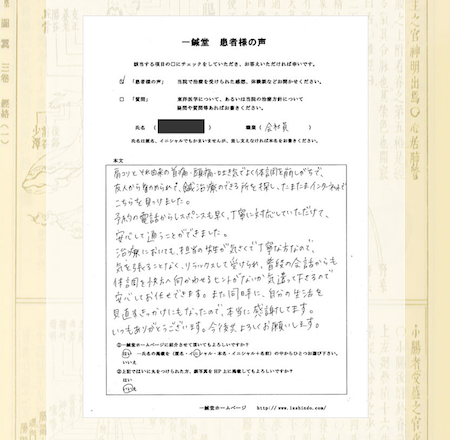 一鍼堂 患者様の声
該当する項目の口にチェックをしていただき、お答えいただければ幸いです。
「患者様の声」 当院で治療を受けられた感想、体験談などお聞かせください。
□ 「質問」 東洋医学について、あるいは当院の治療方針について
疑問や質問等あればお書きください。
氏名（ ） 職業（ 会社員 ）
氏名は匿名、イニシャルでもかまいませんが、差し支えなければ本名をお書きください。
本文
肩コリとそれ由来の首痛・頭痛・吐き気でよく体調を崩しがちで、
友人から勧められて、鍼治療のできる所を探し、たまたまインターネットで
こちらを見つけました。
予約の電話からレスポンスも早く、丁寧に対応していただけて、
安心して通うことができました。
治療においても、担当の先生が気さくで丁寧な方なので、
気を張ることなく、リラックスして受けられ、普段の会話からも
体調を快方に向かわせるヒントがないか気遣って下さるので
安心してお任せできます。また同時に、自分の生活を
見直すきっかけにもなったので、本当に感謝してます。
いつもありがとうございます。今後もよろしくお願いします。
①一鍼堂ホームページに紹介させて頂いてもよろしいですか？
はい ―氏名の掲載を（匿名・イニシャル・本名・イニシャル＋名前）の中からひとつお選び下さい。
いいえ
②上記ではいに丸をつけられた方、顔写真を HP 上に掲載してもよろしいですか？
はい
いいえ
一鍼堂ホームページ http://www.isshindo.com/
圖翼 三卷 經絡（一）